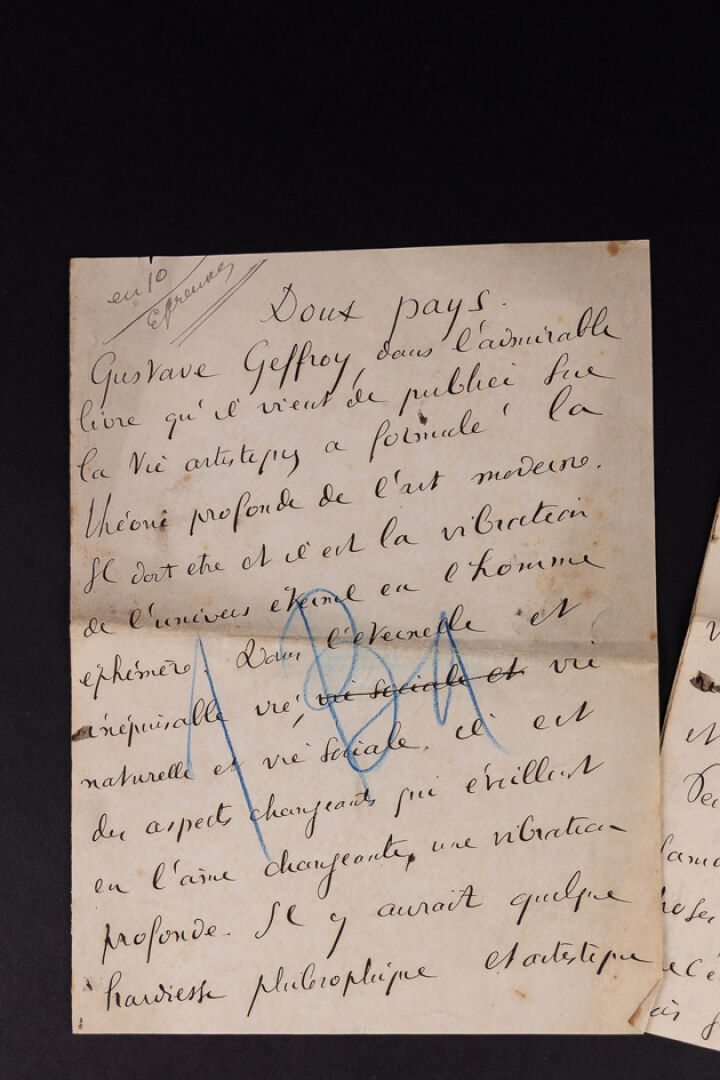 en 10
Epreuves
Doux pays.
Gustave Geffroy, dans l'admirable
livre qu'il vient de publier sur
la Vie artistique a formulé la
théorie profonde de l'art moderne.
Il doit etre et il est la vibration
de l'univers éternel en l'homme
ephémère. Dans l'eternelle et
inépuisable vie, vie sociale et vie
naturelle et vie sociale, il est
des aspects changeants qui éveillent
en l'âme changeante, une vibration
profonde. Il y aurait quelque
hardiesse philosophique et artistique
et